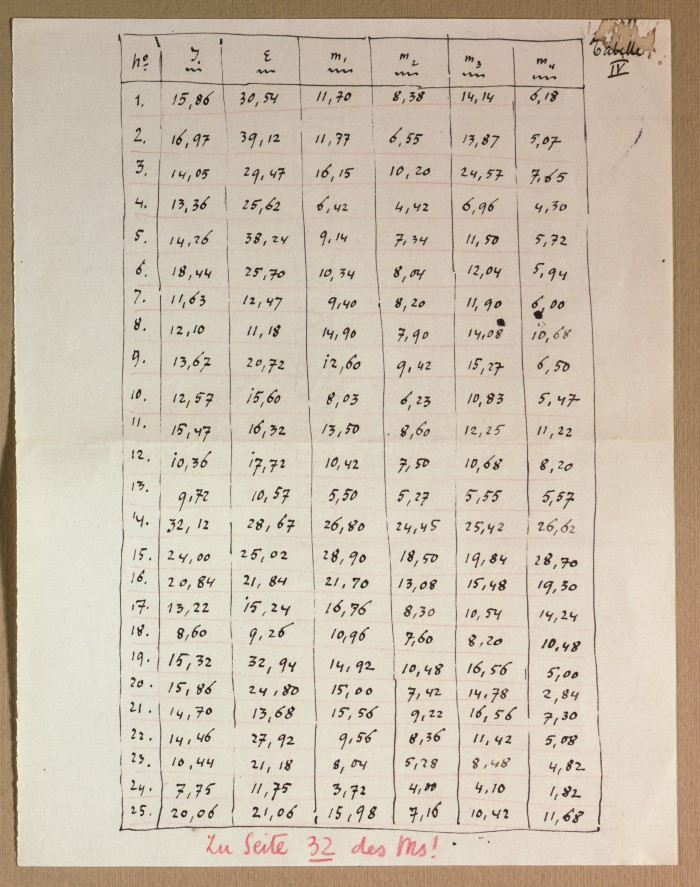 Tabelle
IV
No. J. E m1 m2 m3 m4
1. 15,86 30,54 11,70 8,38 14,14 6,18
2. 16,97 39,12 11,77 6,55 13,87 5,07
3. 14,05 29,47 16,15 10,20 24,57 7,65
4. 13,36 25,62 6,42 4,42 6,96 4,30
5. 14,26 38,24 9,14 7,34 11,50 5,72
6. 18,44 25,70 10,34 8,04 12,04 5,94
7. 11,63 12,47 9,40 8,20 11,90 6,00
8. 12,10 11,18 14,90 7,90 14,08 10,68
9. 13,67 20,72 12,60 9,42 15,27 6,50
10. 12,57 15,60 8,03 6,23 10,83 5,47
11. 15,47 16,32 13,50 8,60 12,25 11,22
12. 10,36 17,72 10,42 7,50 10,68 8,20
13. 9,72 10,57 5,50 5,27 5,55 5,57
14. 32,12 28,67 26,80 24,45 25,42 26,62
15. 24,00 25,02 28,90 18,50 19,84 28,70
16. 20,84 21,84 21,70 13,08 15,48 19,30
17. 13,22 15,24 16,76 8,30 10,54 14,24
18. 8,60 9,26 10,96 7,60 8,20 10,48
19. 15,32 32,94 14,92 10,48 16,56 5,00
20. 15,86 24,80 15,00 7,42 14,78 2,84
21. 14,70 13,68 15,56 9,22 16,56 7,30
22. 14,46 27,92 9,56 8,36 11,42 5,08
23. 10,44 21,18 8,04 5,28 8,48 4,82
24. 7,75 11,75 3,72 4,00 4,10 1,82
25. 20,06 21,06 15,98 7,16 10,42 11,68
Zu Seite 32 des Ms!